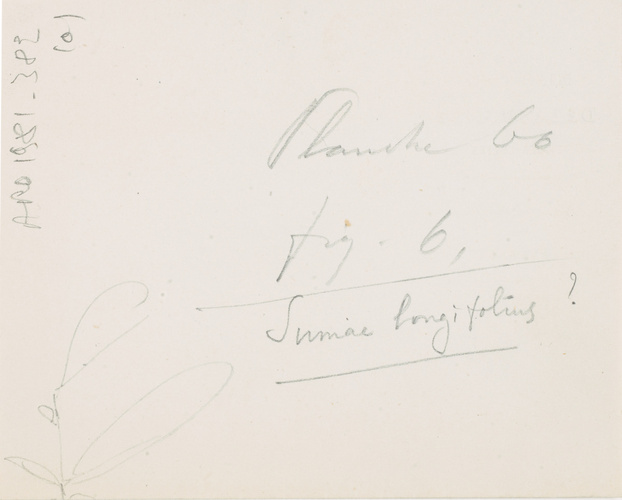 Planche 60
fig. 6,
Sumac longifolius ?
ARO 1981-382
(a)